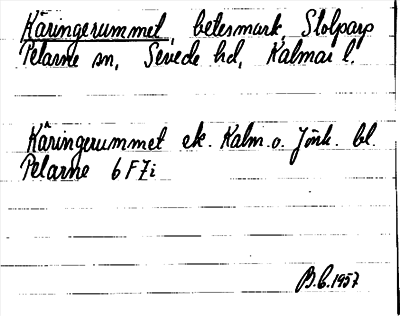 Käringerummet, betesmark, Stolparp
Pelarne sn, Sevede hd, Kalmar l.
Käringerummet ek. Kalm. o. Jönk. bl.
Pelarne 6 F 7 i
B.C. 1957